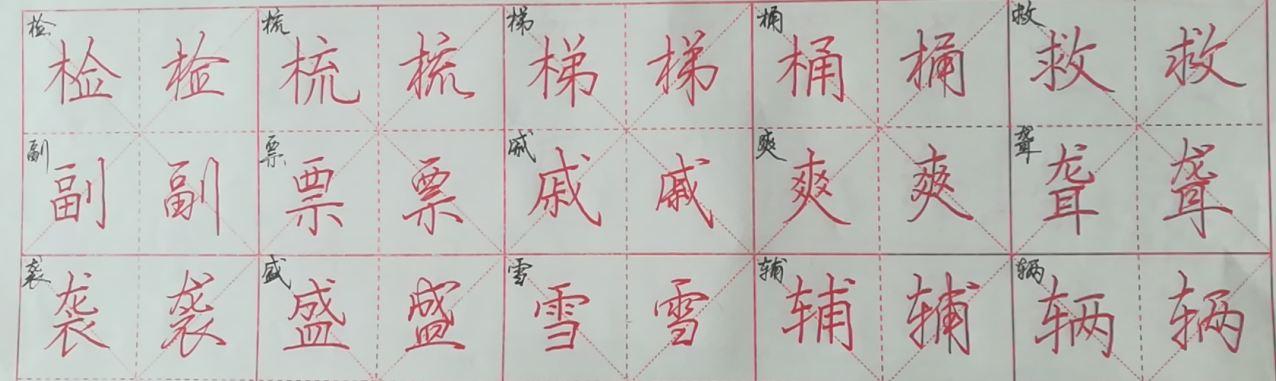 检 检 检 梳 梳 梳 梯 梯 梯 桶 桶 桶 救 救 救
副 副 副 票 票 票 戚 戚 戚 爽 爽 爽 聋 聋 聋
袭 袭 袭 盛 盛 盛 雪 雪 雪 辅 辅 辅 辆 辆 辆